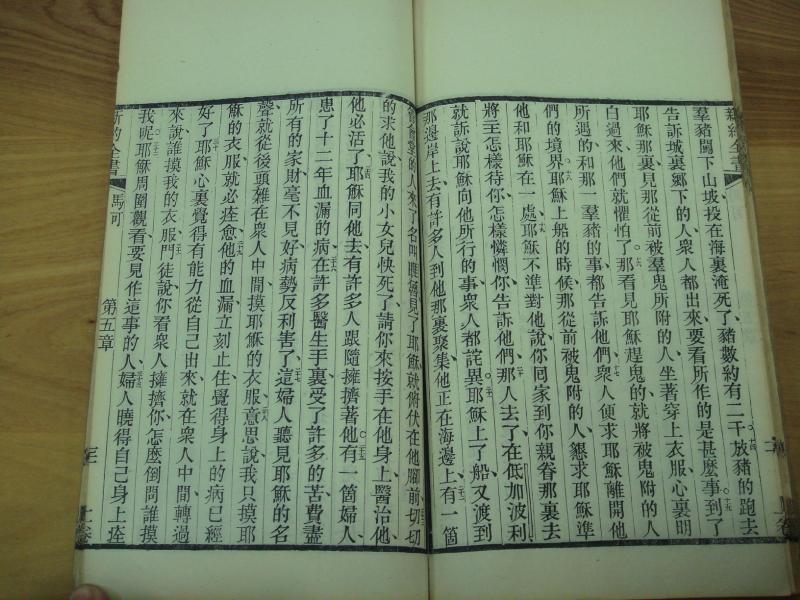 羣豬闖下山坡投在海裏淹死了豬數約有二千放豬的跑去
告訴城裏鄉下的人衆人都出來要看所作的是甚麽事到了
耶穌那裏見那從前被羣鬼所附的人坐著穿上衣服心裏明
白過來他們就懼怕了那看見耶穌趕鬼的就將被鬼附的人
所遇的和那一羣豬的事都告訴他們衆人便求耶穌離開他
們的境界耶穌上船的時候那從前被鬼附的人懇求耶穌準
他和耶穌在一處耶穌不準對他說你回家到你親眷那裏去
將主怎樣待你怎樣憐憫你告訴他們那人去了在低加波利
就訴說耶穌向他所行的事衆人都詫異耶穌上了船又渡到
那邊岸上去有許多人到他那裏聚集他正在海邊上有一個
的人來了名叫見了耶穌就俯伏在他腳前切切
的求他說我的小女兒快死了請你來按手在他身上醫治他
他必活了耶穌同他去有許多人跟隨擁擠著他有一箇婦人
患了十二年血漏的病在許多醫生手裏受了許多的苦費盡
所有的家財毫不見好病勢反利害了這婦人聽見耶穌的名
聲就從後頭雜在衆人中間摸耶穌的衣服意思說我只摸耶
穌的衣服就必痊愈他的血漏立刻止住覺得身上的病已經
好了耶穌心裏覺得有能力從自己出來就在衆人中間轉過
來說誰摸我的衣服門徒說你看衆人擁擠你怎麽倒問誰摸
我呢耶穌周圍觀看要見作這事的人婦人曉得自己身上痊
新約全書 馬可 第五章 三 上卷